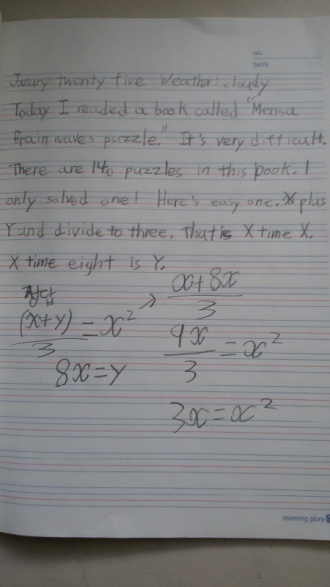 NO.
DATE
Janury twenty five Weather: clody
Today I readed a book called "Mensa
Brain waves puzzle." It's very difficult.
There are 140 puzzles in this book. I
only solved one! Here's easy one. X plus
Y and divide to three. That is X time X.
X time eight is Y.
(x+y)/3 = x²
8x=y
→ x+8x/3
9x/3 = x²
3x=x²
morning glory